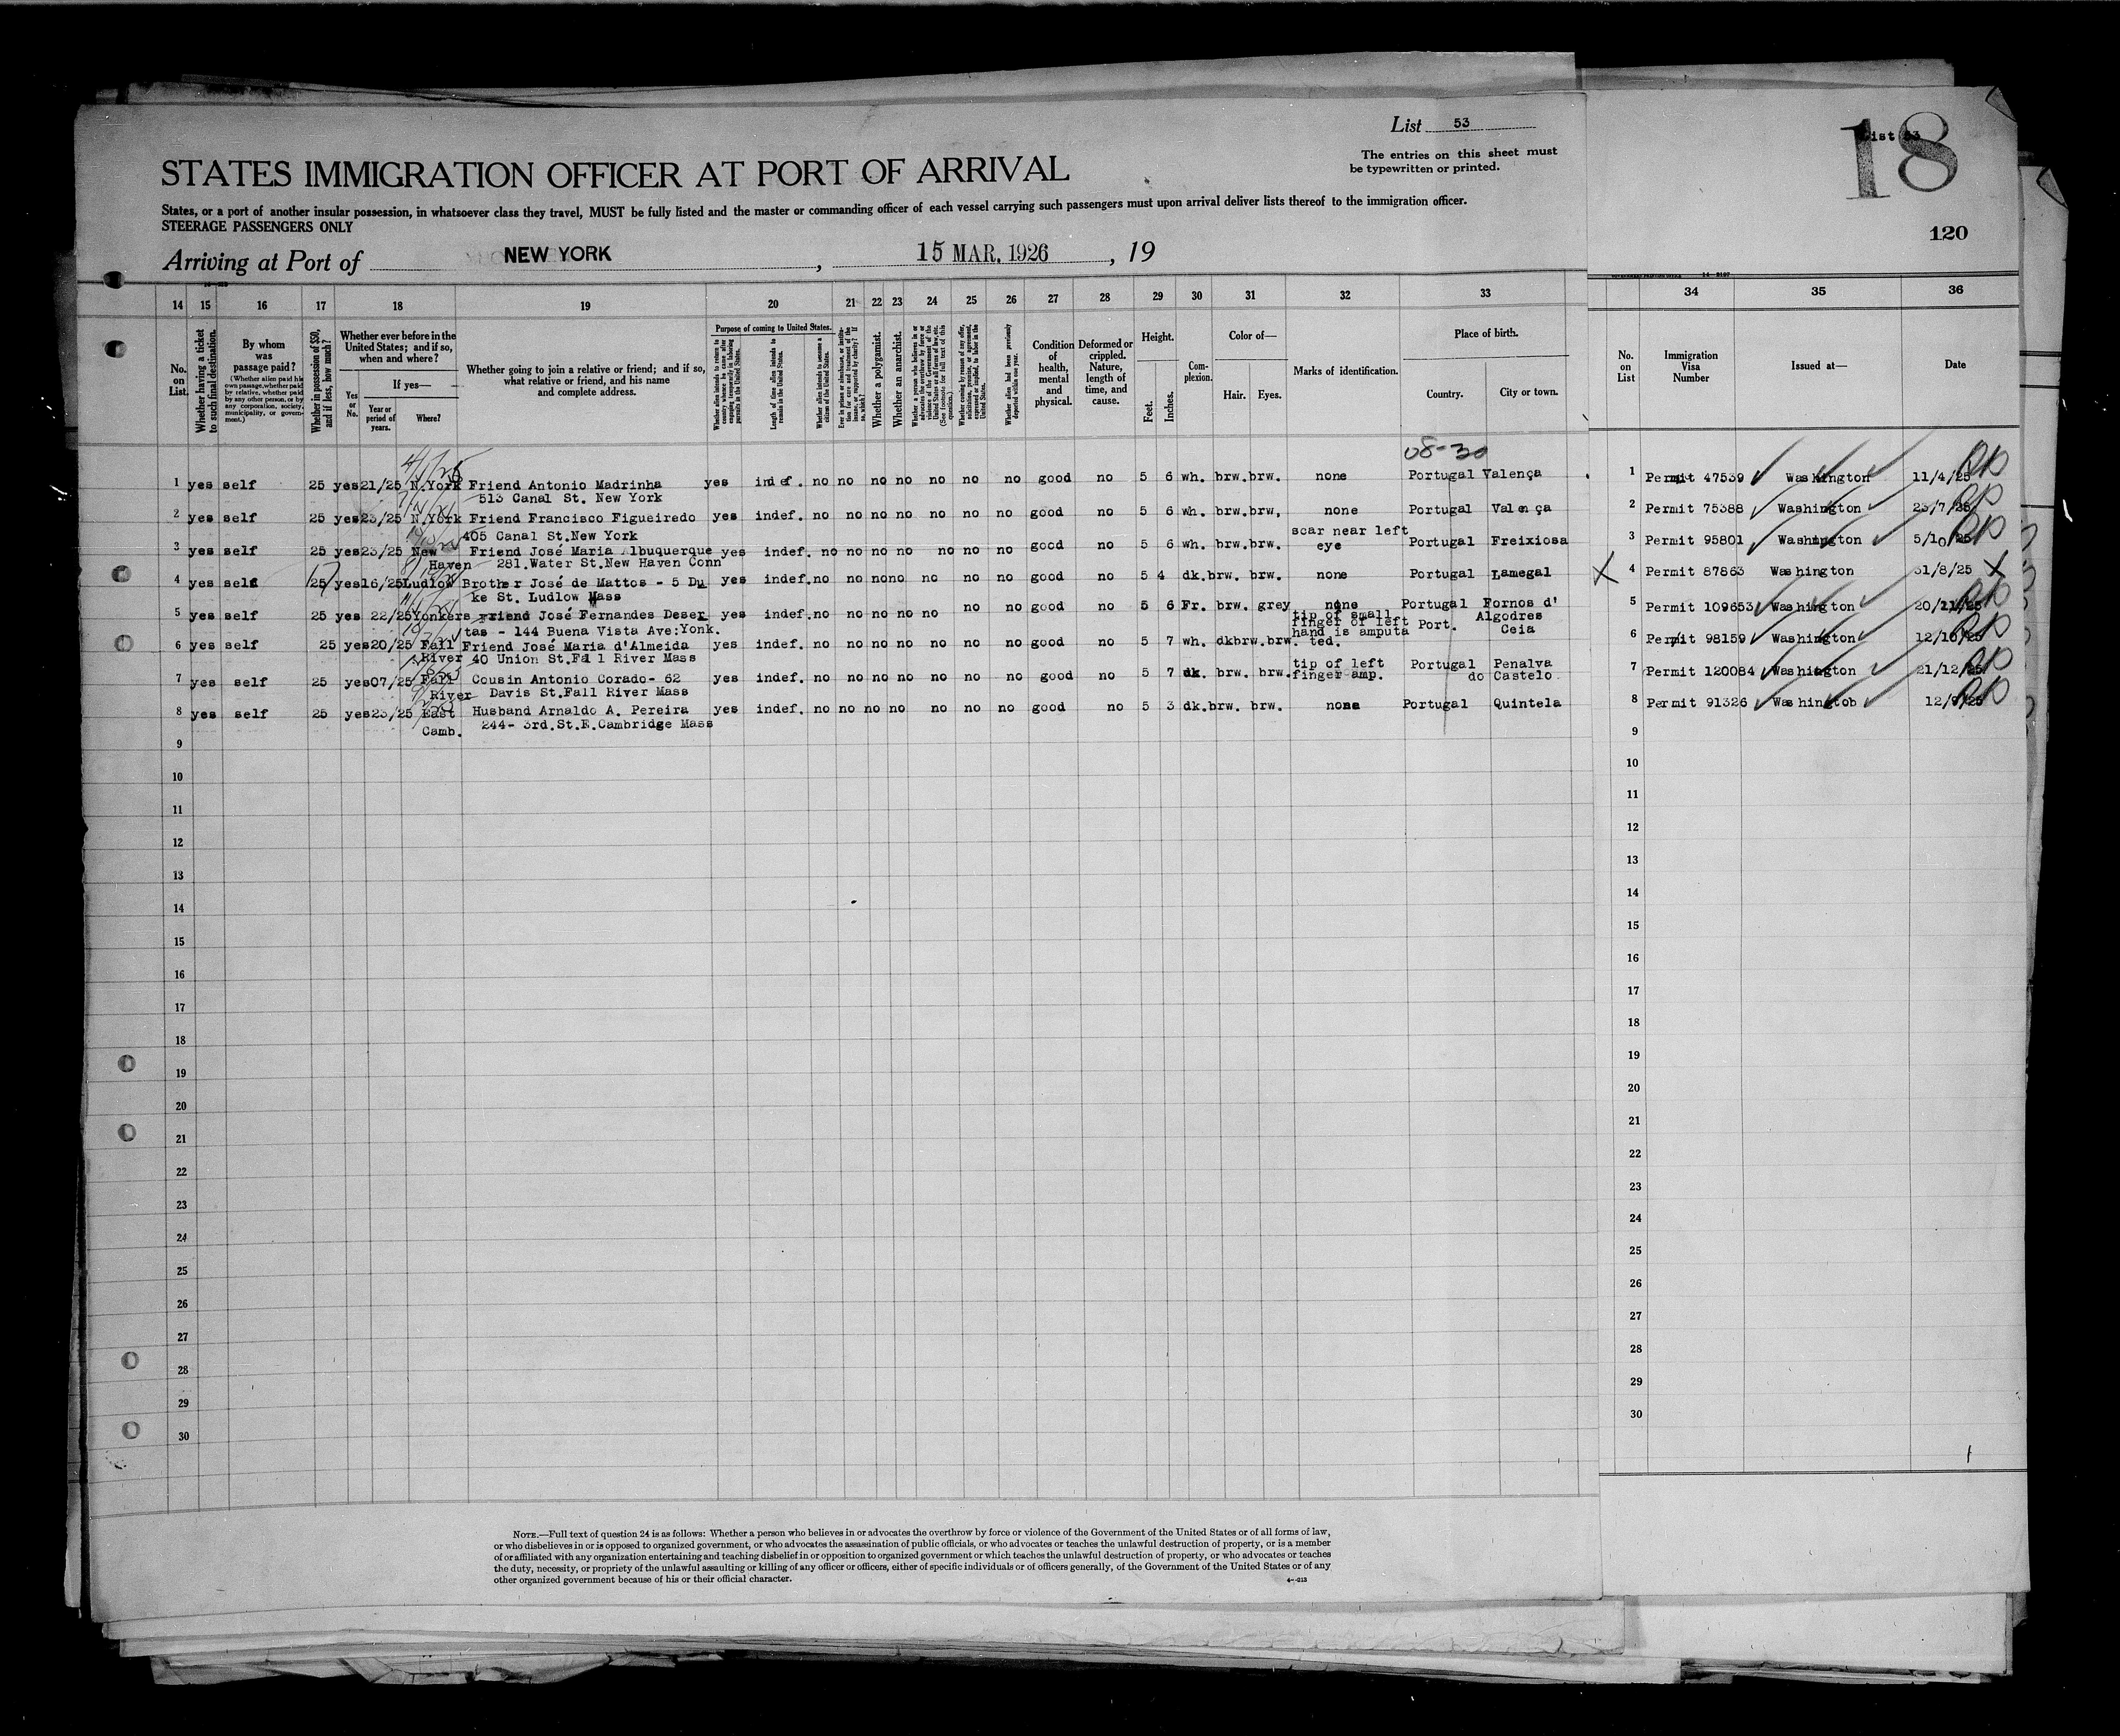 List 53
The entries on this sheet must
be typewritten or printed.
STATES IMMIGRATION OFFICER AT PORT OF ARRIVAL
States, or a port of another insular possession, in whatsoever class they travel, MUST be fully listed and the master or commanding officer of each vessel carrying such passengers must upon arrival deliver lists thereof to the immigration officer.
STEERAGE PASSENGERS ONLY
Arriving at Port of NEW YORK, 15 MAR. 1926, 19
List 53
18
120
14 15 16 17 18 19 20 21 22 23 24 25 26 27 28 29 30 31 32 33 34 35 36
No. on List.
Whether having a ticket to such final destination.
By whom was passage paid?
(Whether alien paid his own passage, whether paid by relative, whether paid by any other person, or by any corporation, society, municipality, or government.)
Whether in possession of $50, and if less, how much?
Whether ever before in the United States; and if so, when and where?
Yes or No.
If yes—
Year or period of years.
Where?
Whether going to join a relative or friend; and if so, what relative or friend, and his name and complete address.
Purpose of coming to United States.
Length of time alien intends to remain in the United States.
Whether alien intends to become a citizen of the United States.
Whether a polygamist.
Whether an anarchist.
Whether alien had been previously deported within one year.
Condition of health, mental and physical.
Deformed or crippled. Nature, length of time, and cause.
Height.
Feet.
Inches.
Complexion.
Color of—
Hair.
Eyes.
Marks of identification.
Place of birth.
Country.
City or town.
No. on List
Immigration Visa Number
Issued at—
Date
08-30
1 yes self 25 yes 21/25 N.York Friend Antonio Madrinha yes indef. no no no no no no no good no 5 6 wh. brw. brw. none Portugal Valença
513 Canal St. New York
2 yes self 25 yes 23/25 N.York Friend Francisco Figueiredo yes indef. no no no no no no no good no 5 6 wh. brw. brw. none Portugal Valença
405 Canal St.New York
3 yes self 25 yes 23/25 New Friend José Maria Albuquerque yes indef. no no no no no no no good no 5 6 wh. brw. brw. scar near left eye Portugal Freixiosa
Haven 281.Water St.New Haven Conn
4 yes self 25 yes 16/25 Ludlow Brother José de Mattos - 5 Du yes indef. no no no no no no no good no 5 4 dk. brw. brw. none Portugal Lamegal
ke St. Ludlow Mass
5 yes self 25 yes 22/25 Yonkers Friend José Fernandes Deser yes indef. no no no no no no no good no 5 6 Fr. brw. grey none Portugal Fornos d' Algodres
tas - 144 Buena Vista Ave:Yonk.
6 yes self 25 yes 20/25 Fall Friend José Maria d'Almeida yes indef. no no no no no no no good no 5 7 wh. dkbrw. brw. tip of small finger of left hand is amputa ted. Port. Ceia
River 40 Union St.Fall River Mass
7 yes self 25 yes 07/25 Fall Cousin Antonio Corado- 62 yes indef. no no no no no no no good no 5 7 dk. brw. brw. tip of left finger amp. Portugal Penalva do Castelo
River Davis St.Fall River Mass
8 yes self 25 yes 23/25 East Husband Arnaldo A. Pereira yes indef. no no no no no no no good no 5 3 dk. brw. brw. none Portugal Quintela
Camb. 244- 3rd.St.E.Cambridge Mass
9
10
11
12
13
14
15
16
17
18
19
20
21
22
23
24
25
26
27
28
29
30
1 Permit 47539 Washington 11/4/25
2 Permit 75388 Washington 23/7/25
3 Permit 95801 Washington 5/10/25
X 4 Permit 87863 Washington 31/8/25 X
5 Permit 109653 Washington 20/11/25
6 Permit 98159 Washington 12/10/25
7 Permit 120084 Washington 21/12/25
8 Permit 91326 Washingtob 12/9/25
9
10
11
12
13
14
15
16
17
18
19
20
21
22
23
24
25
26
27
28
29
30
NOTE.—Full text of question 24 is as follows: Whether a person who believes in or advocates the overthrow by force or violence of the Government of the United States or of all forms of law,
or who disbelieves in or is opposed to organized government, or who advocates the assassination of public officials, or who advocates or teaches the unlawful destruction of property, or is a member
of or affiliated with any organization entertaining and teaching disbelief in or opposition to organized government or which teaches the unlawful destruction of property, or who advocates or teaches
the duty, necessity, or propriety of the unlawful assaulting or killing of any officer or officers, either of specific individuals or of officers generally, of the Government of the United States or of any
other organized government because of his or their official character.